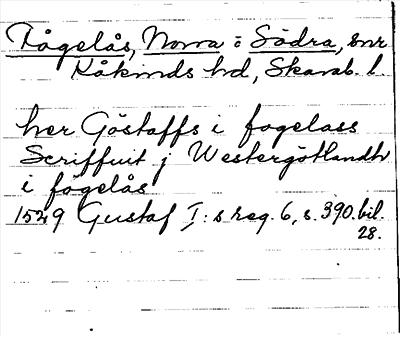 Fågelås, Norra o Södra, snr
Kåkinds hd, Skarab. l.
her Göstaffs i fogelass
Scriffuit j Westergötlandh
i fögelås
1529 Gustaf I:s reg. 6, s. 390. bil.
28.